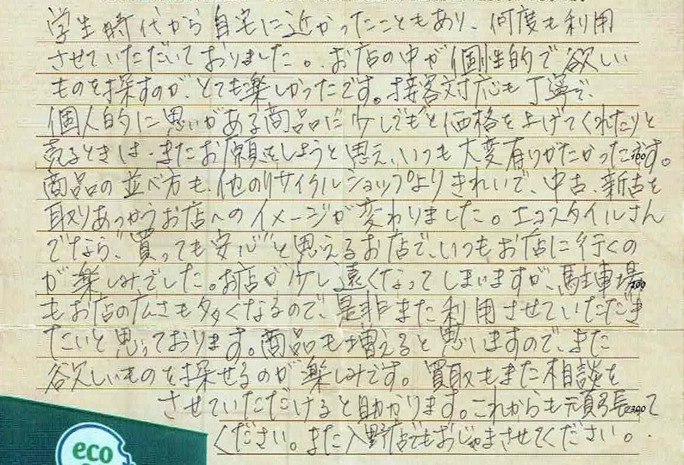 学生時代から自宅に近かったこともあり、何度も利用
させていただいておりました。お店の中が個性的で欲しい
ものを探すのが、とても楽しかったです。接客対応も丁寧で、
個人的に思いがある商品に少しでもと価格を上げてくれたりと
売るときは、またお願をしようと思え、いつも大変有りがたかったです。
100
商品の並べ方も、他のリサイクルショップよりきれいで、中古、新古を
取りあつかうお店へのイメージが変わりました。エコスタイルさん
でなら、"買っても安心"と思えるお店で、いつもお店に行くの
が楽しみでした。お店が少し遠くなってしまいますが、駐車場
200
もお店の広さも多くなるので、是非また利用させていただき
たいと思っております。商品も増えると思いますので、また
欲しいものを探せるのが楽しみです。買取もまた相談を
させていただけると助かります。これからも頑張って
300
ください。また入野店でもおじゃまさせてください。
eco